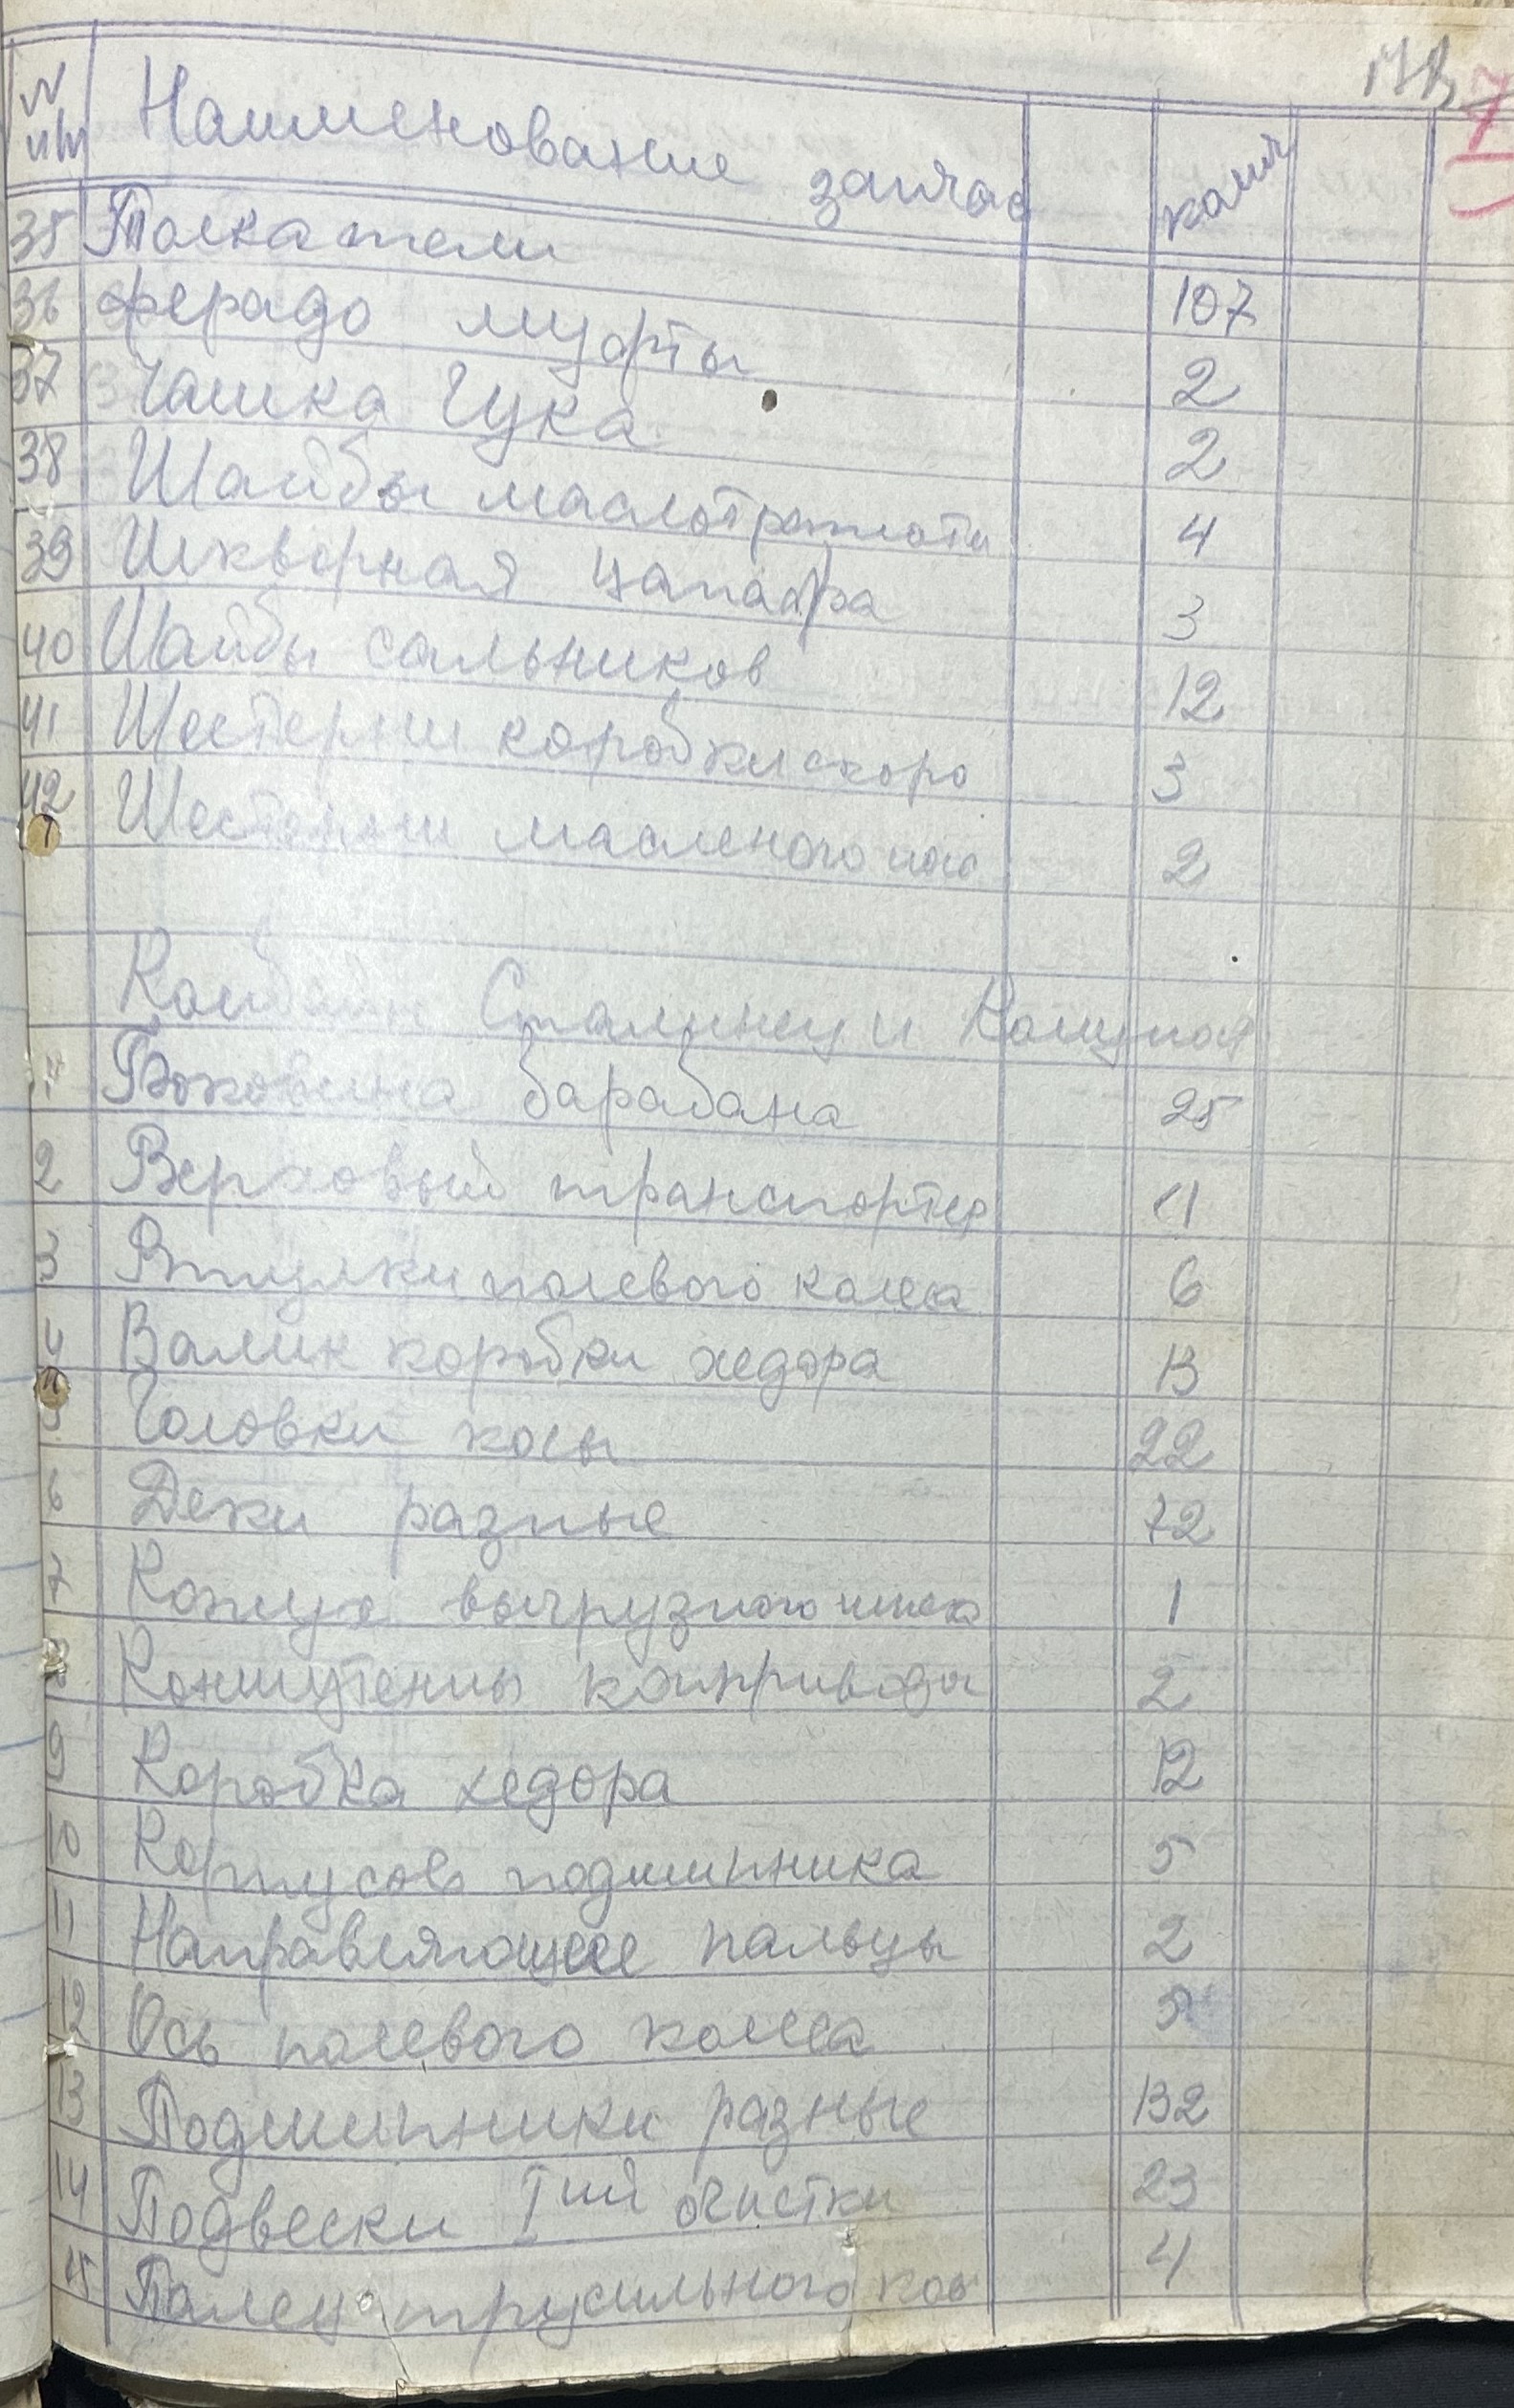 № п/п Наименование запчас колич
35 Толкатели 107
36 ферадо муфты 2
37 Чашка Гука 2
38 Шайбы маслотражати 4
39 Шкворная цапафра 3
40 Шайбы сальников 12
41 Шестерни коробки скоро 3
42 Шестерни масленого нас 2
Комбайн Сталинец и Комунар
1 Боковина барабана 25
2 Верховый транспортер 11
3 Втулки полевого колеса 6
4 Валик коробки хедора 13
5 Головки косы 22
6 Деки разные 72
7 Кожух выгрузного шнека 1
8 2
9 Коробка хедора 12
10 Корпусов подшипника 5
11 Направляющее пальцы 2
12 Ось полевого колеса 5
13 Подшипники разные 132
14 Подвески I ый очистки 23
15 Палец трусильного 4